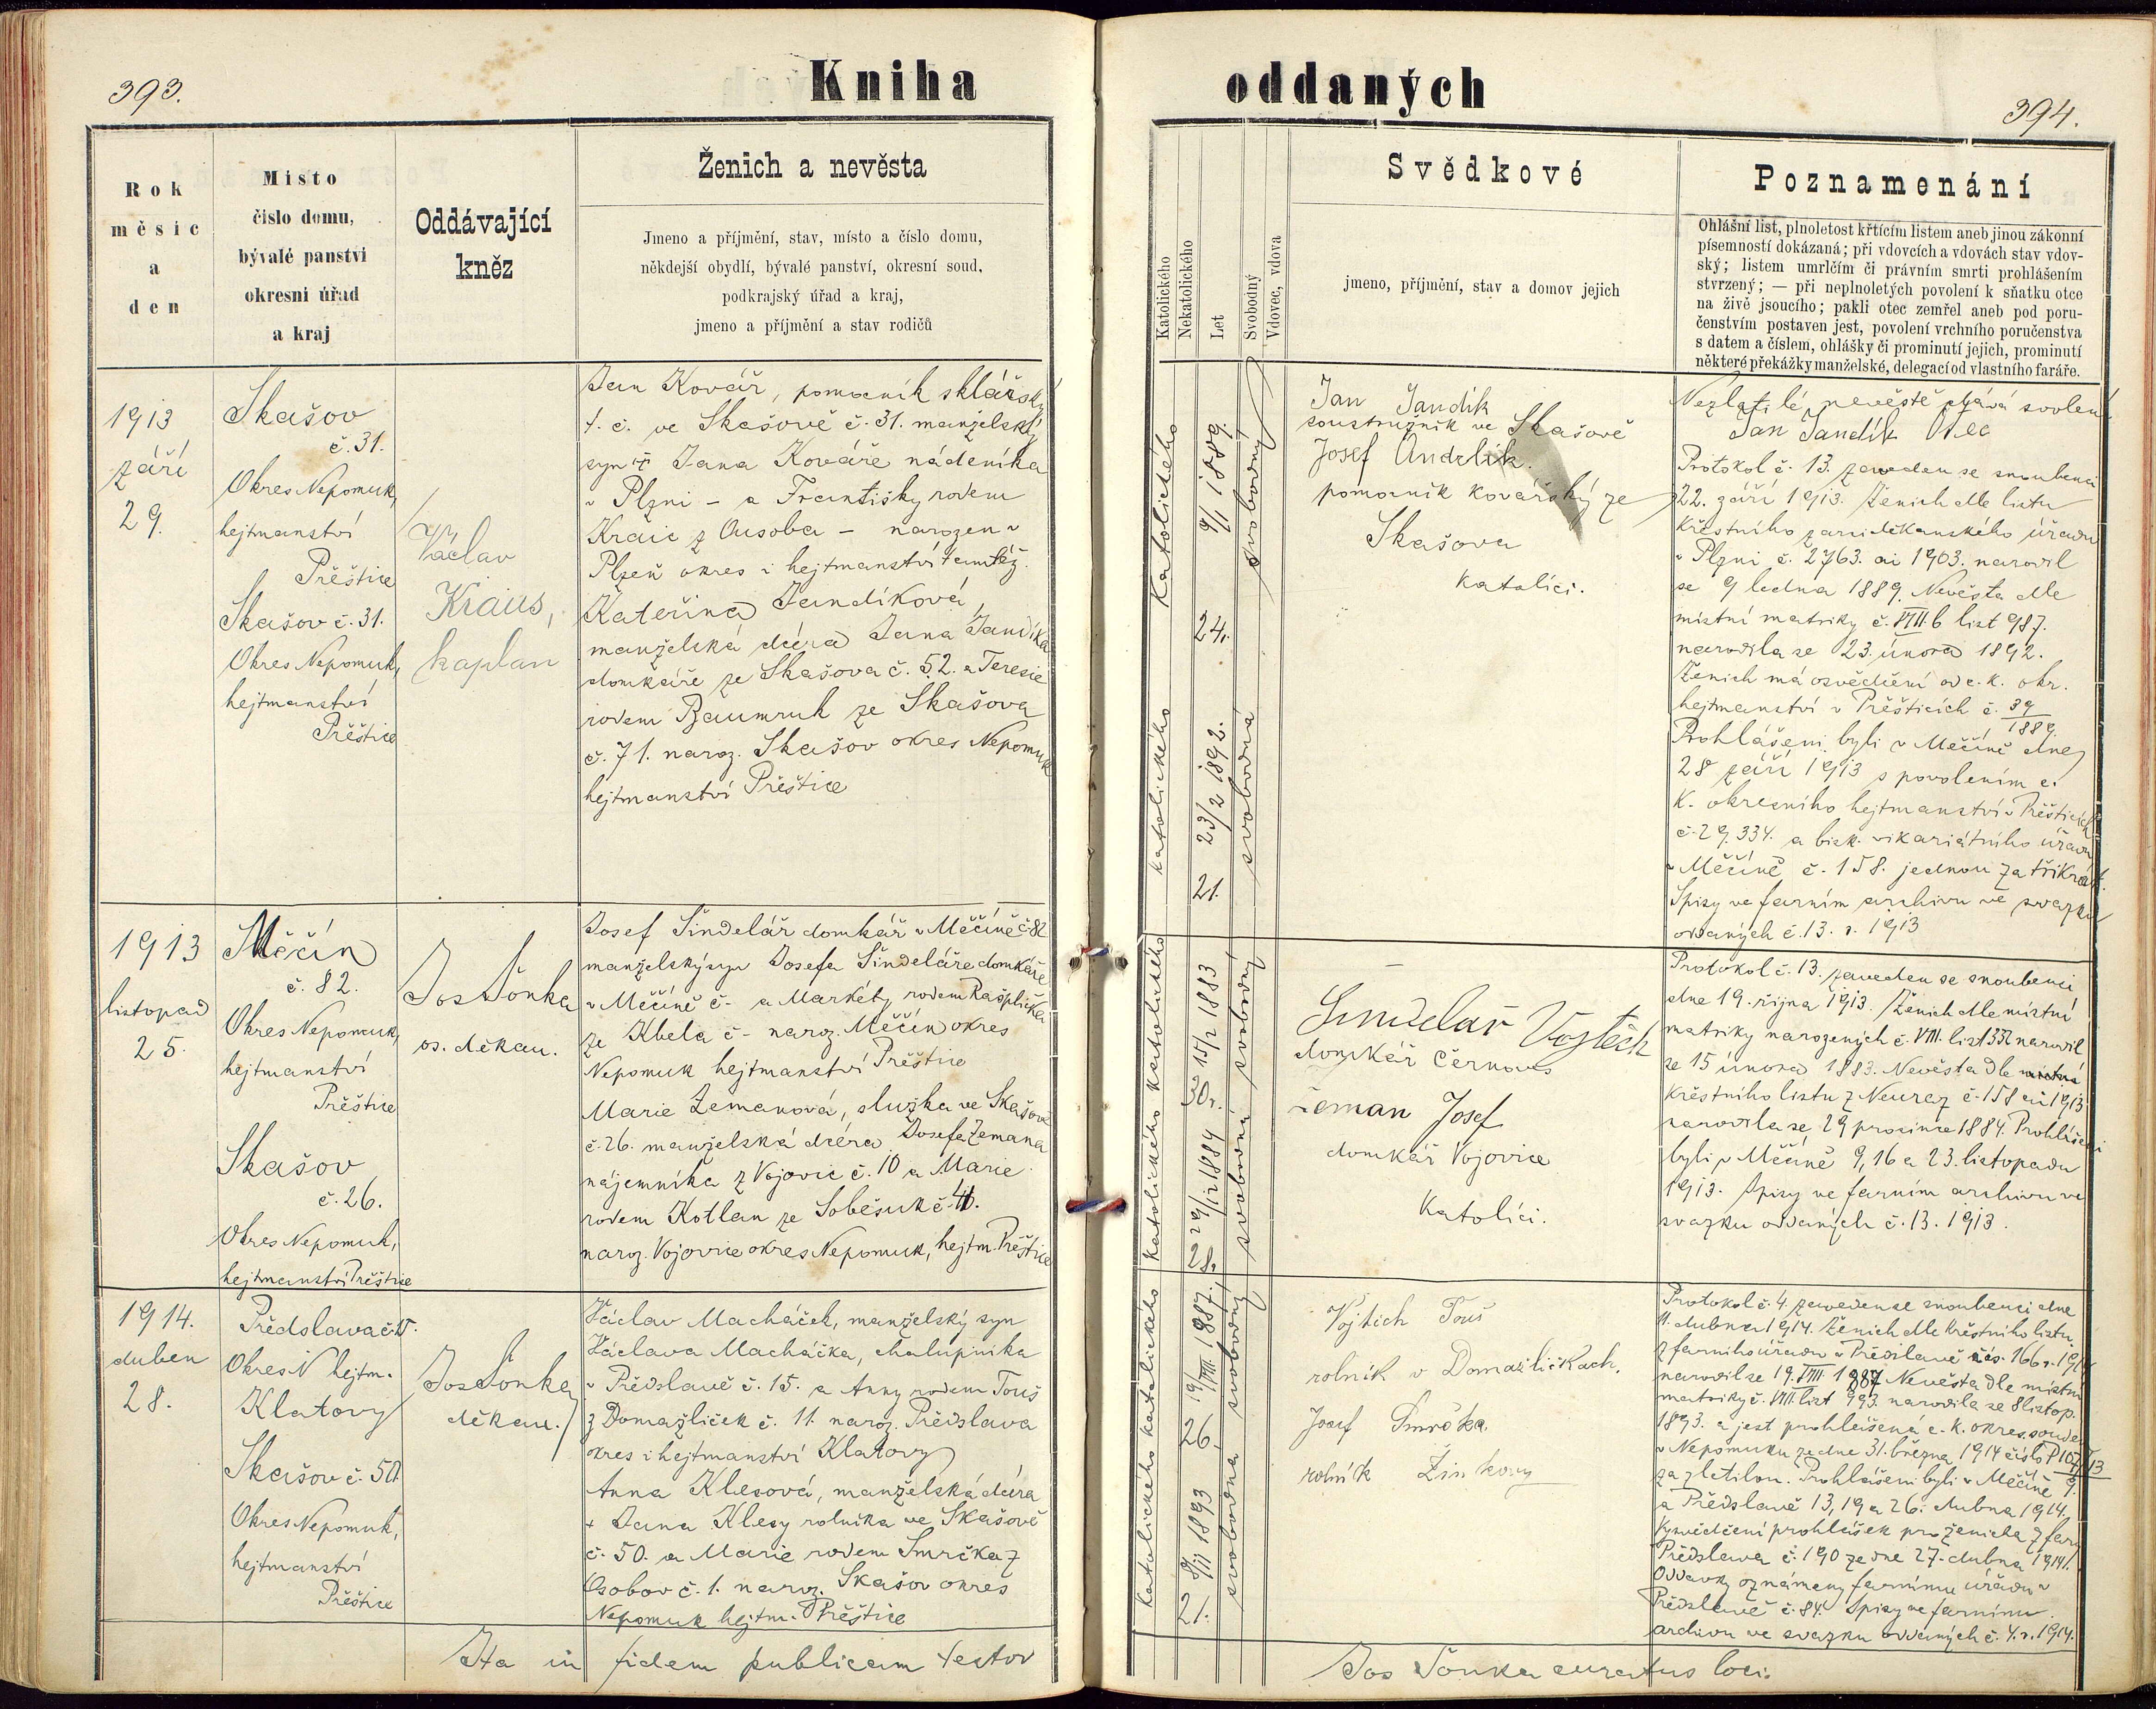 393.
Kniha
oddaných
394.
Rok
měsíc
a
den
Místo
číslo domu,
bývalé panství
okresní úřad
a kraj
Oddávající
kněz
Ženich a nevěsta
Jmeno a příjmění, stav, místo a číslo domu,
někdejší obydlí, bývalé panství, okresní soud,
podkrajský úřad a kraj,
jmeno a příjmění a stav rodičů
Katolického
Nekatolického
Let
Svobodný
Vdovec, vdova
Svědkové
jmeno, příjmění, stav a domov jejich
Poznamenání
Ohlášní list, plnoletost křtícím listem aneb jinou zákonní
písemností dokázaná; při vdovcích a vdovách stav vdov-
ský; listem umrlčím či právním smrti prohlášením
stvrzený; — při neplnoletých povolení k sňatku otce
na živě jsoucího; pakli otec zemřel aneb pod poru-
čenstvím postaven jest, povolení vrchního poručenstva
s datem a číslem, ohlášky či prominutí jejich, prominutí
některé překážky manželské, delegací od vlastního faráře.
1913
září
29.
Skašov
č. 31.
Okres Nepomuk,
hejtmanství
Přeštice
Skašov č. 31.
Okres Nepomuk,
hejtmanství
Přeštice
Václav
Kraus,
kaplan
Jan Kovář, pomocník sklářský
t. č. ve Skašově č. 31. manželský
syn Jana Kováře nádeníka
v Plzni – a Františky rodem
Kraic z Ousoba – narozen v
Plzeň okres i hejtmanství tamtéž.
Kateřina Jandíková,
manželská dcera Jana Jandíka
domkáře ze Skašova č. 52. a Teresie
rodem Baumruk ze Skašova
č. 71. naroz. Skašov okres Nepomuk
hejtmanství Přeštice
katolického
9/1 1889.
24.
svobodný
katolického
23/2 1892.
21.
svobodná
Jan Jandík
soustružník ve Skašově
Josef Andrlík.
pomocník kovářský ze
Skašova
katolíci.
Nezletilé nevěstě dává svolení
Jan Jandík Otec
Protokol č. 13. zaveden se snoubenci
22. září 1913. Ženich dle listu
křestního arciděkanského úřadu
v Plzni č. 2763. ai 1903. narodil
se 9 ledna 1889. Nevěsta dle
místní matriky č. VIII. b list 987.
narodila se 23. února 1892.
Ženich má osvědčení od c. k. okr.
hejtmanství v Přešticích č. 39/1889.
Prohlášeni byli v Měčíně dne
28 září 1913 s povolením c.
k. okresního hejtmanství v Přešticích
č. 29.334. a bisk. vikariátního úřadu
v Měčíně č. 158. jednou za třikrát.
Spisy ve farním archivu ve svazku
oddaných č. 13. r. 1913
1913
listopad
25.
Měčín
č. 82.
Okres Nepomuk,
hejtmanství
Přeštice
Skašov
č. 26.
Okres Nepomuk,
hejtmanství Přeštice
Jos Šonka
os. děkan.
Josef Šindelář domkář v Měčíně č. 82
manželský syn Josefa Šindeláře domkáře
v Měčíně č – a Markéty rodem Rašplička
ze Kbela č – naroz. Měčín okres
Nepomuk hejtmanství Přeštice
Marie Zemanová, služka ve Skašově
č. 26. manželská dcera Josefa Zemana
nájemníka z Vojovic č. 10 a Marie
rodem Kotlan ze Soběsuk č. 41.
naroz. Vojovice okres Nepomuk, hejtm. Přeštice
katolického
15/2 1883
30 r.
svobodný
katolického
29/12 1884
28.
svobodná
Šindelář Vojtěch
domkář Černovs
Zeman Josef
domkář Vojovice
Katolíci.
Protokol č. 13. zaveden se snoubenci
dne 19. října 1913. Ženich dle místní
matriky narozených č. VIII. list 332 narodil
se 15 února 1883. Nevěsta dle místní
křestního listu z Neuraz č. 158 ai 1913.
narodila se 29 prosince 1884. Prohlášeni
byli v Měčíně 9, 16 a 23. listopadu
1913. Spisy ve farním archivu ve
svazku oddaných č. 13. 1913.
1914.
duben
28.
Předslav č. 15.
Okres i hejtm.
Klatovy
Skašov č. 50.
Okres Nepomuk,
hejtmanství
Přeštice
Jos Šonka
děkan.
Václav Macháček, manželský syn
Václava Macháčka, chalupníka
v Předslavě č. 15. a Anny rodem Touš
z Domažliček č. 11. naroz. Předslava
okres i hejtmanství Klatovy
Anna Klesová, manželská dcera
+ Jana Klesy rolníka ve Skašově
č. 50. a Marie rodem Smrčka z
Osobov č. 1. naroz. Skašov okres
Nepomuk hejtm. Přeštice
katolického
19/VIII 1887.
26
svobodný
katolického
8/11 1893
21.
svobodná
Vojtěch Touš
rolník v Domažličkách.
Josef Smrčka.
rolník Žinkovy
Protokol č. 4. zaveden se snoubenci dne
11. dubna 1914. Ženich dle křestního listu
z farního úřadu v Předslavě čís. 166 r. 191
narodil se 19. VIII. 1887 Nevěsta dle místní
matriky č. VIII. list 993. narodila se 8 listop.
1893. a jest prohlášená c. k. okres. soudem
v Nepomuku ze dne 31. března 1914 číslo P 107/13
za zletilou. Prohlášeni byli v Měčíně 9.
a Předslavě 13, 19 a 26. dubna 1914.
Vysvědčení prohlášek pro ženicha z fary
Předslava č. 190 ze dne 27. dubna 1914.
Oddavky oznámeny farnímu úřadu v
Předslavě č. 84. Spisy ve farním
archivu ve svazku oddaných č. 4. r. 1914.
Ita in fidem publicam testor
Jos Šonka curatus loci.